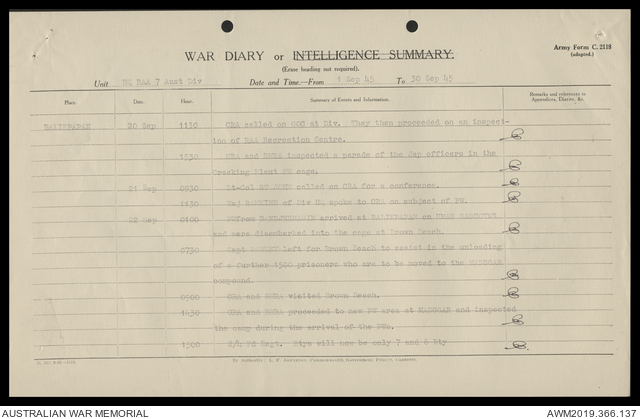 Army Form C. 2118
(adapted.)
WAR DIARY or INTELLIGENCE SUMMARY.
(Erase heading not required).
Unit HQ RAA 7 Aust Div Date and Time.—From 1 Sep 45 To 30 Sep 45
Place Date. Hour. Summary of Events and Information. Remarks and references to Appendices, Diaries, &c.
BALIKPAPAN 20 Sep 1130 CRA called on GOC at Div. They then proceeded on an inspect-
ion of RAA Recreation Centre.
1530 CRA and BMRA inspected a parade of the Jap officers in the
Cracking Plant PW cage.
21 Sep 0930 Lt-Col called on CRA for a conference.
1130 Maj of Div HQ spoke to CRA on subject of PW.
22 Sep 0100 PW from arrived at BALIKPAPAN on HMAS
and were disembarked into the cage at Brown Beach.
0730 Capt left for Brown Beach to assist in the unloading
of a further 1500 prisoners who are to be moved to the MANGGAR
compound.
0900 CRA and BMRA visited Brown Beach.
1430 CRA and BMRA proceeded to new PW area at MANGGAR and inspected
the camp during the arrival of the PWs.
1500 2/4 Fd Regt. Btys will now be only 7 and 8 Bty
AUSTRALIAN WAR MEMORIAL AWM2019.366.137